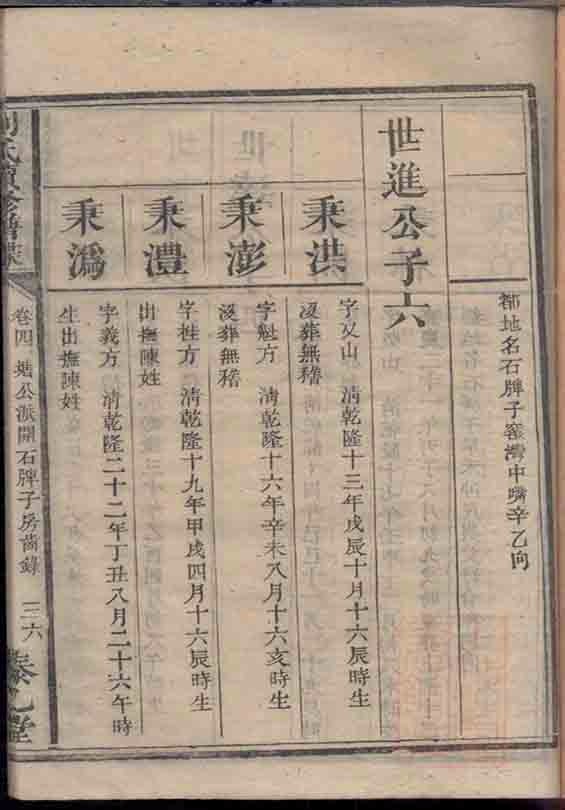 都地名石牌子窰灣中嘴辛乙向
世進公子六
秉洪
字又山 清乾隆十三年戊辰十月十六辰時生
沒葬無稽
秉澎
字魁方 清乾隆十六年辛未八月十六亥時生
沒葬無稽
秉灃
字桂方 清乾隆十九年甲戌四月十六辰時生
出撫陳姓
秉潙
字義方 清乾隆二十二年丁丑八月二十六午時
生出撫陳姓
氏續修譜牒
卷四 塘公派開石牌子房齒錄 三六